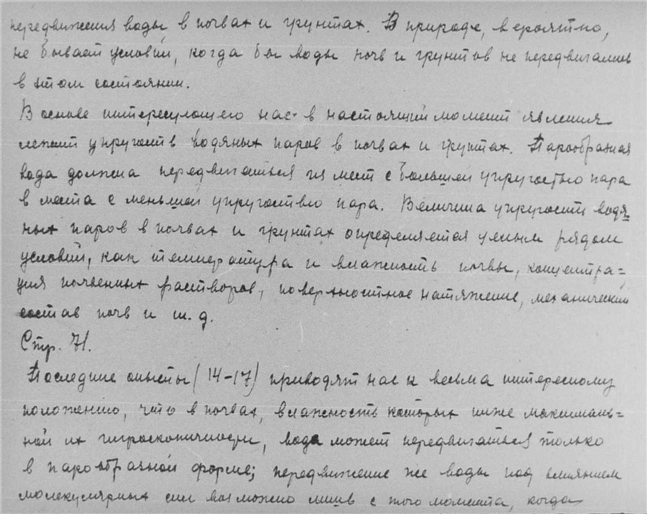 передвижения воды в почвах и грунтах. В природе, вероятно,
не бывает условий, когда бы воды почв и грунтов не передвигались
в этом состоянии.
В основе интересующего нас в настоящий момент явления
лежит упругость водяных паров в почвах и грунтах. Парообразная
вода должна передвигаться из мест с большей упругостью пара
в места с меньшей упругостью пара. Величина упругости водя-
ных паров в почвах и грунтах определяется целым рядом
условий, как температура и влажность почвы, концентра-
ция почвенных растворов, поверхностное натяжение, механический
состав почв и т.д.
Стр. 71.
Последние опыты (14-17) приводят нас к весьма интересному
положению, что в почвах, влажность которых ниже максималь-
ной их гигроскопичности, вода может передвигаться только
в парообразной форме; передвижение же воды под влиянием
молекулярных сил возможно лишь с того момента, когда